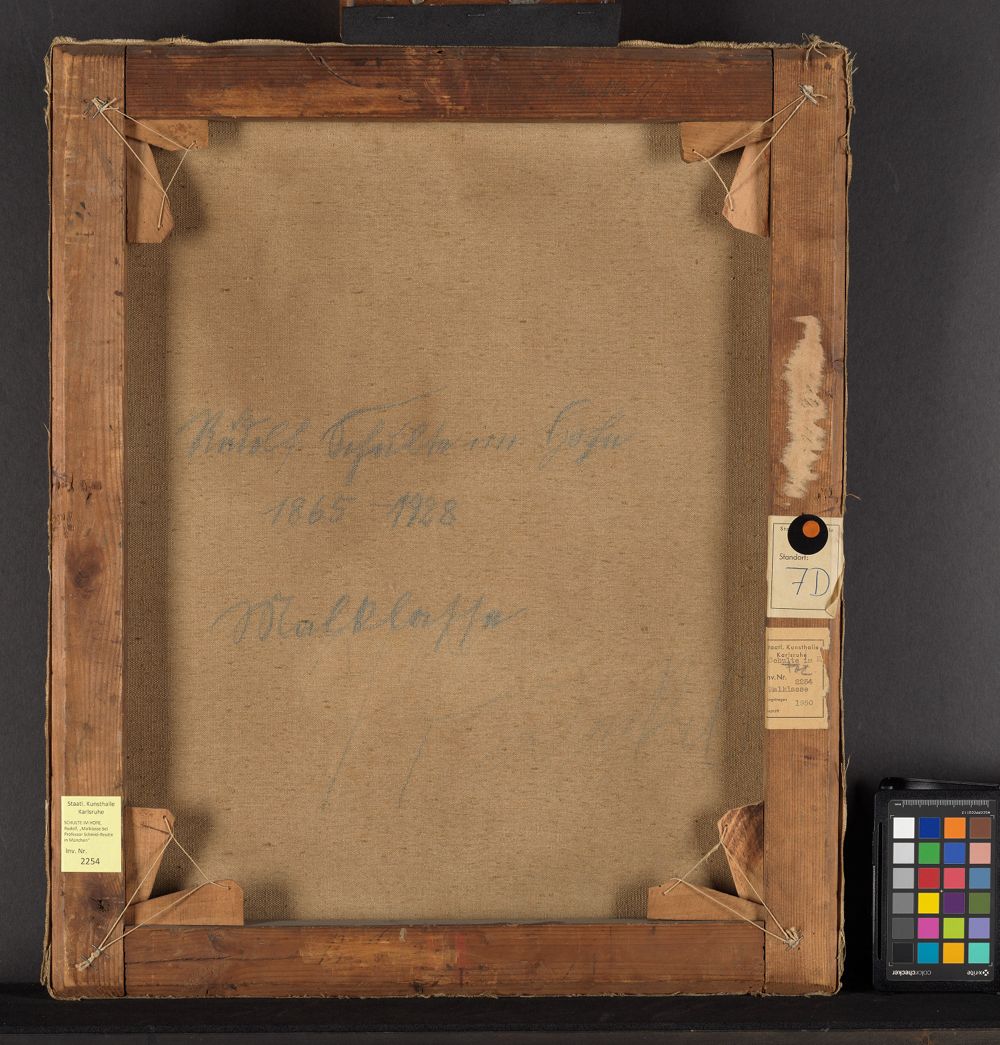 Rudolf Schulte im Hofe
1865 - 1928
Malklasse
Standort:
7D
Staatl. Kunsthalle
Karlsruhe
Schulte im
Inv. Nr. 2254
Malklasse
1950
Staatl. Kunsthalle
Karlsruhe
SCHULTE IM HOFE,
Rudolf, „Malklasse bei
Professor Schmid-Reutte
in München"
Inv. Nr.
2254
colorchecker
x-rite